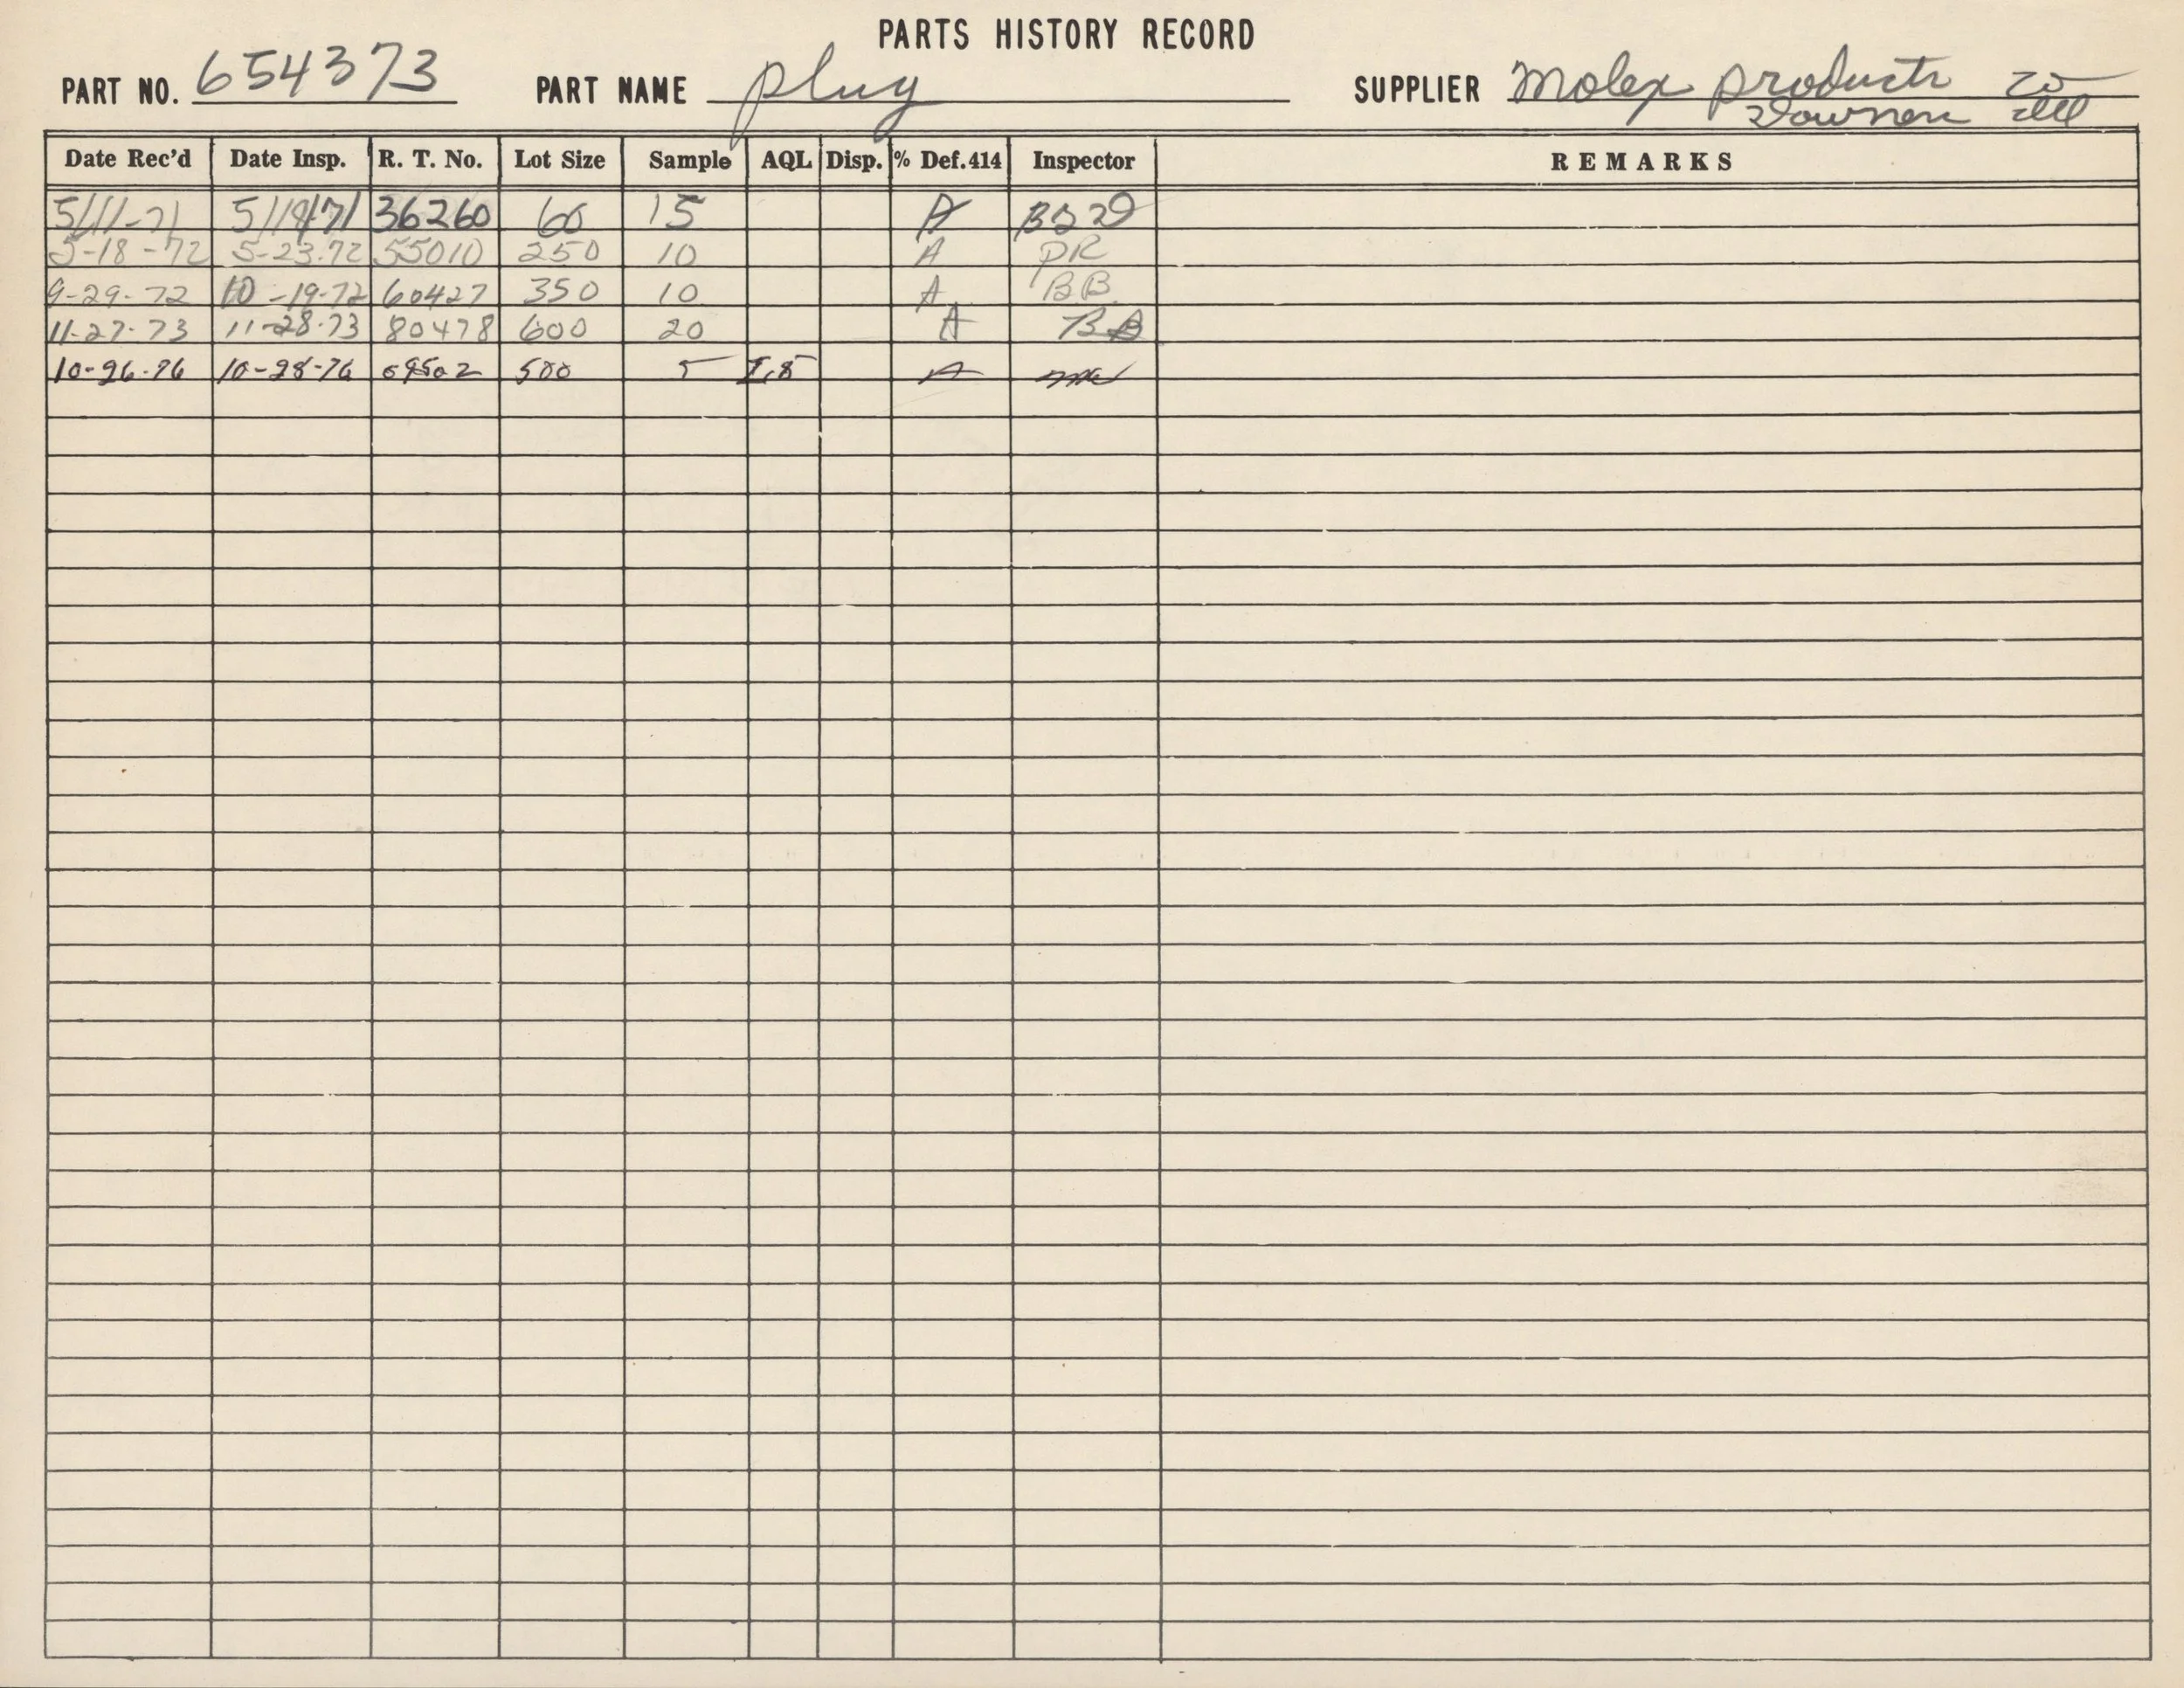 PARTS HISTORY RECORD
PART NO. 654373 PART NAME plug SUPPLIER Molex products co
Downers Ill
Date Rec'd Date Insp. R. T. No. Lot Size Sample AQL Disp. % Def.414 Inspector REMARKS
5/11-71 5/19/71 36260 60 15 A
5-18-72 5-23-72 55010 250 10 A DR
9-29-72 10-19-72 60427 350 10 A BB
11-27-73 11-28-73 80478 600 20 A BB
10-26-76 10-28-76 09502 500 5 A